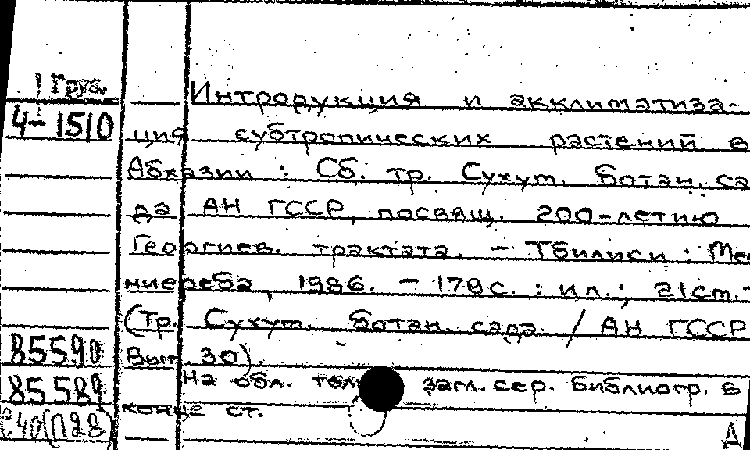 Груз.
4-1510
Интродукция и акклиматиза-
ция субтропических растений в
Абхазии : Сб. тр. Сухум. ботан. са
да АН ГССР, посвящ. 200-летию
Георгиев. трактата. - Тбилиси : Ме
ниереба, 1986. - 178 с. : ил.; 21 см. -
(Тр. Сухум. ботан. сада / АН ГССР
Вып. 30).
85590
На обл. загл. сер. Библиогр. в
85589
конце ст.
Д